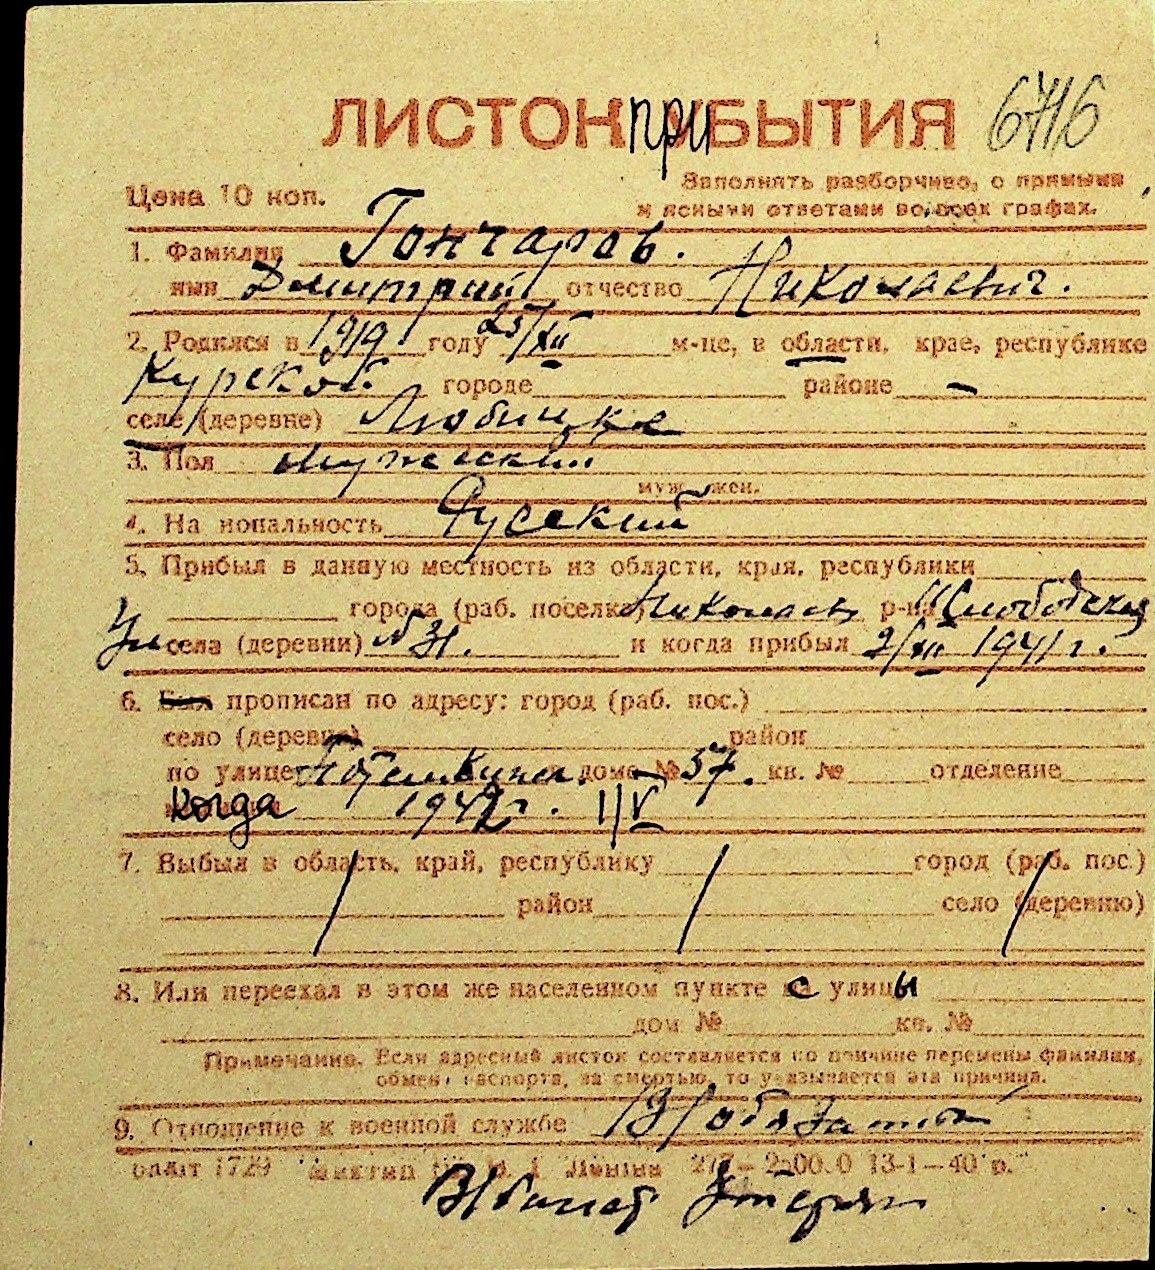 ЛИСТОК при БЫТИЯ 6716
Цена 10 коп.
Заполнять разборчиво, с прямыми
и ясными ответами во всех графах.
1. Фамилия Гончаров.
имя Дмитрий отчество Николаевич.
2. Родился в 1919 году 25/XII м-це, в области, крае, республике
Курской городе районе –
селе (деревне) Любицке
3. Пол Мужеский
муж. жен.
4. Национальность Русский
5. Прибыл в данную местность из области, края, республики
города (раб. поселка) Николаев р-на Слободская
Ул села (деревни) № 31. и когда прибыл 2/XII 1941 г.
6. Был прописан по адресу: город (раб. пос.)
село (деревня) район
по улице Потемкинск. доме № 57. кв. № отделение
когда 1942 г. 1/V
7. Выбыл в область, край, республику город (раб. пос.)
район село (деревню)
8. Или переехал в этом же населенном пункте с улицы
дом № кв. №
Примечание. Если адресный листок составляется по причине перемены фамилии,
обмена паспорта, за смертью, то указывается эта причина.
9. Отношение к военной службе В/обязанный
1729 13-1—40 р.
В/билет Утерян